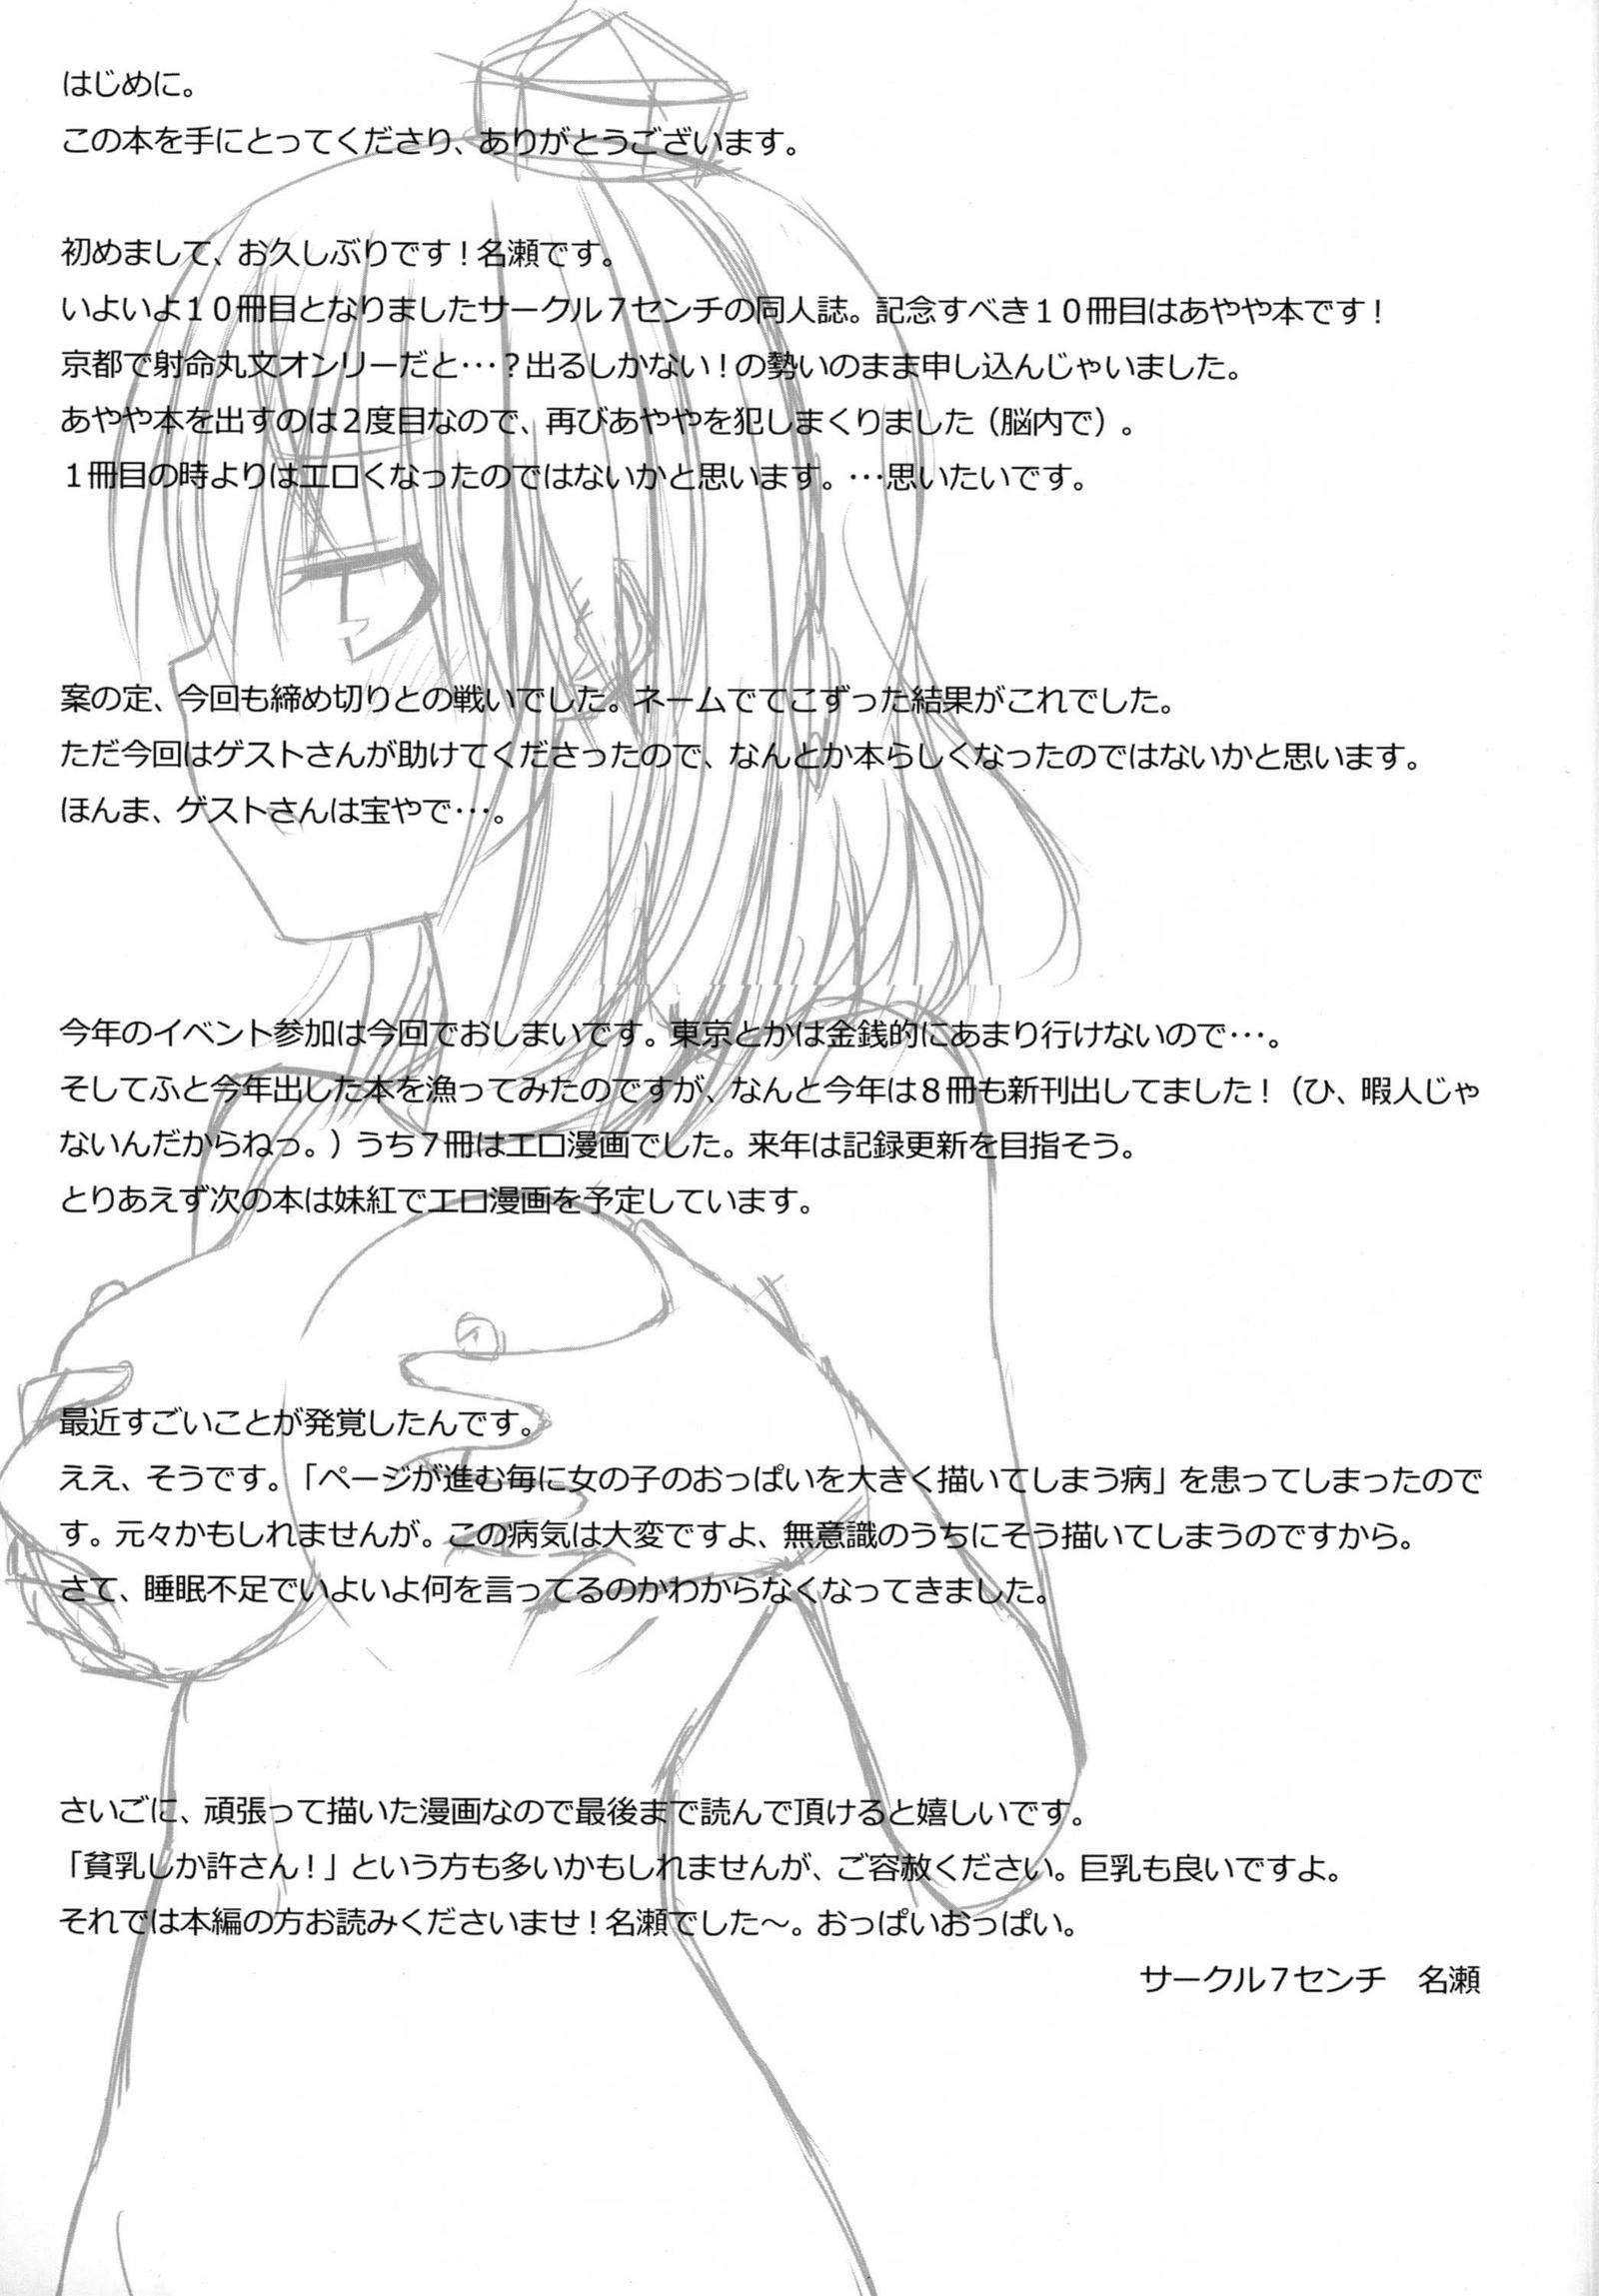 はじめに。
この本を手にとってくださり、ありがとうございます。
初めまして、お久しぶりです！名瀬です。
いよいよ１０冊目となりましたサークル７センチの同人誌。記念すべき１０冊目はあやや本です！
京都で射命丸文オンリーだと･･･？出るしかない！の勢いのまま申し込んじゃいました。
あやや本を出すのは２度目なので、再びあややを犯しまくりました（脳内で）。
１冊目の時よりはエロくなったのではないかと思います。･･･思いたいです。
案の定、今回も締め切りとの戦いでした。ネームでてこずった結果がこれでした。
ただ今回はゲストさんが助けてくださったので、なんとか本らしくなったのではないかと思います。
ほんま、ゲストさんは宝やで･･･。
今年のイベント参加は今回でおしまいです。東京とかは金銭的にあまり行けないので･･･。
そしてふと今年出した本を漁ってみたのですが、なんと今年は８冊も新刊出してました！（ひ、暇人じゃ
ないんだからねっ。）うち７冊はエロ漫画でした。来年は記録更新を目指そう。
とりあえず次の本は妹紅でエロ漫画を予定しています。
最近すごいことが発覚したんです。
ええ、そうです。「ページが進む毎に女の子のおっぱいを大きく描いてしまう病」を患ってしまったので
す。元々かもしれませんが。この病気は大変ですよ、無意識のうちにそう描いてしまうのですから。
さて、睡眠不足でいよいよ何を言ってるのかわからなくなってきました。
さいごに、頑張って描いた漫画なので最後まで読んで頂けると嬉しいです。
「貧乳しか許さん！」という方も多いかもしれませんが、ご容赦ください。巨乳も良いですよ。
それでは本編の方お読みくださいませ！名瀬でした～。おっぱいおっぱい。
サークル７センチ　名瀬